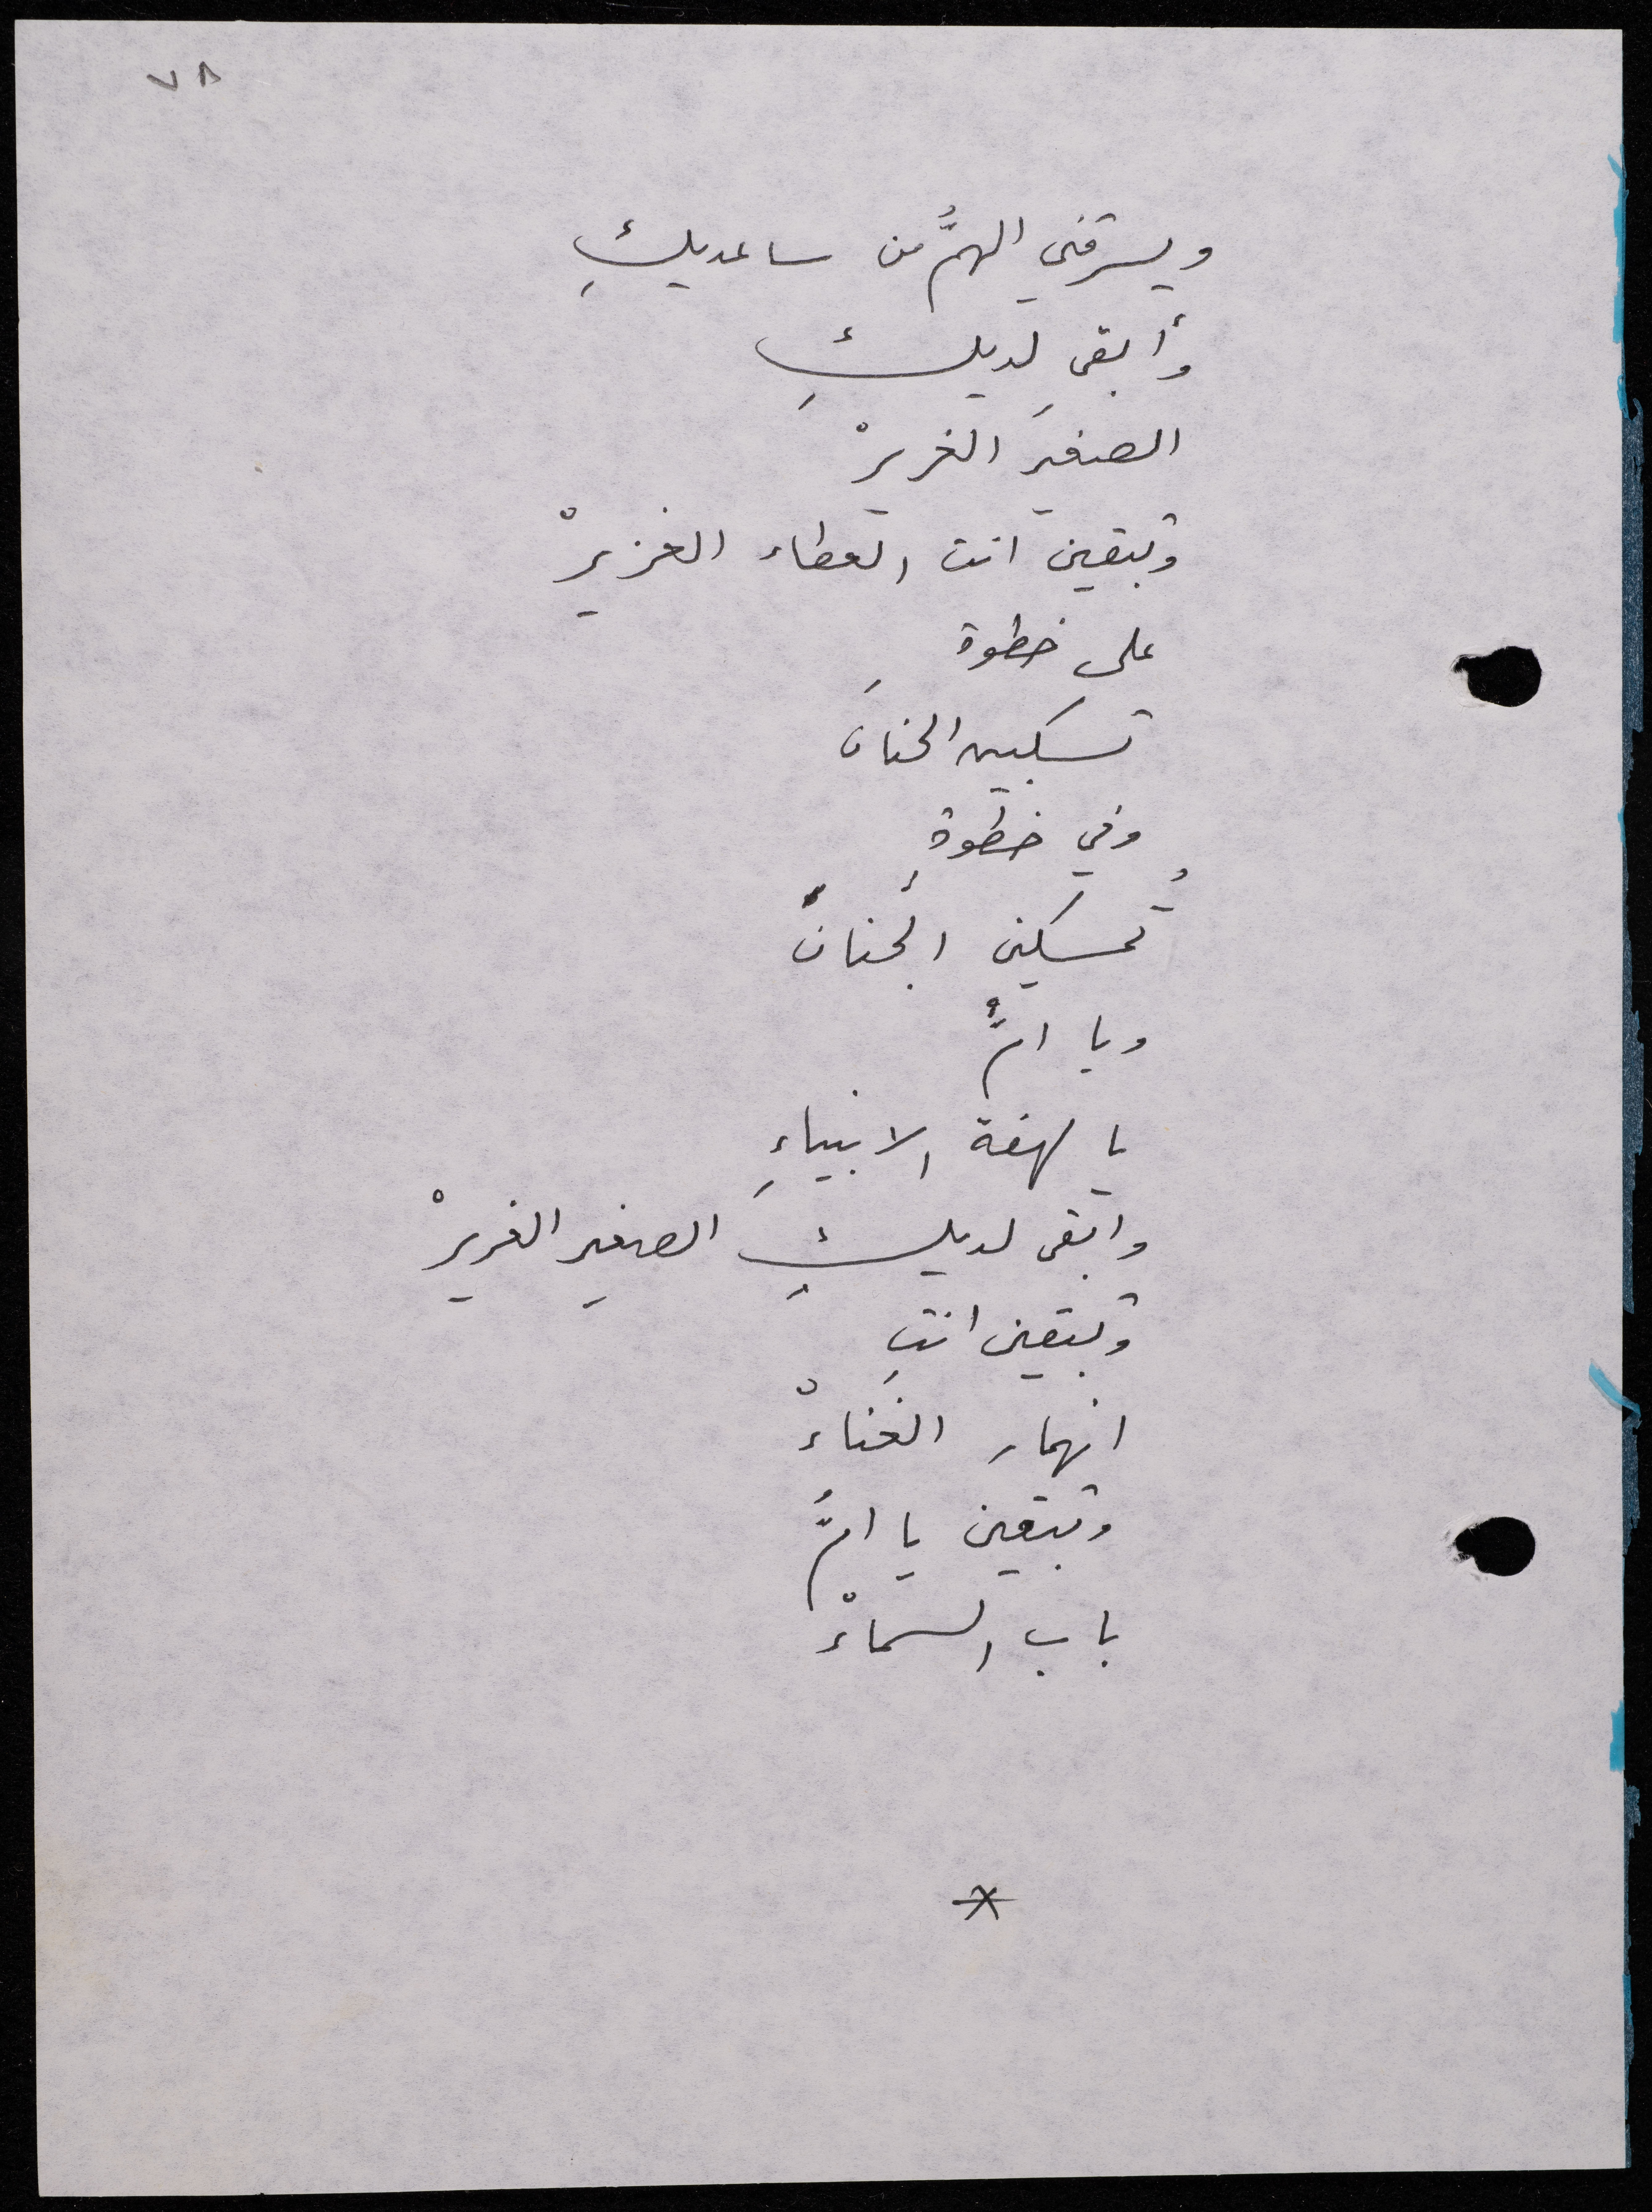 ٧٨
ويسرقني الهمُّ من ساعديكِ
وأبقى لديكِ
الصغيرَ الغريرْ
وتبقين انت العطاء الغزيرْ
على خطوةٍ
تسكبين الحنان
وفي خطوةٍ
تُمسكين الجنانْ
ويا امُّ
يا لهفة الانبياءِ
وابقى لديكِ الصغير الغريرْ
وتبقين انتِ
انهمار الغناءْ
وتبقين يا امُّ
باب السماءْ
*